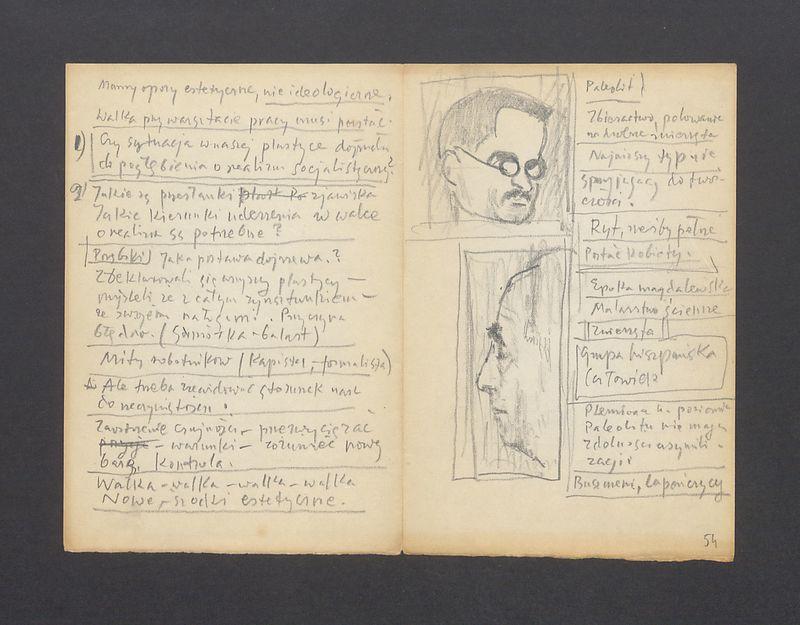 Mamy opory estetyczne, nie ideologiczne.
Walka przy warsztacie pracy musi powstać.
1) Czy sytuacja w naszej plastyce dojrzała
do pogłębienia o realizm socjalistyczny?
2) Jakie są przesłanki zjawiska
Jakie kierunki uderzenia w walce
o realizm są potrzebne?
Porębski) Jaka postawa dojrzewa?
Zdeklarowali się wszyscy plastycy –
myśleli że z całym
ze swojemi nałogami. Przyczyna
błędów. ( – balast)
Mity robotników (Kapiści, – formaliści)
Ale trzeba zrewidować stosunek nasz
do rzeczywistości!
Zaostrzenie czujności – przezwyciężać
– warunki – zrozumieć nową
bazę. Kontrola.
Walka – walka – walka – walka
Nowe – środki estetyczne.
Paleolit)
Zbieractwo, polowanie
na drobne zwierzęta
Najniższy typ nie
sprzyjający do twór-
czości!
Ryt, rzeźby pełne
Postać kobiety.
Epoka magdaleńska
Malarstwo ścienne
Zwierzęta
Grupa hiszpańska
Człowiek
Plemiona na poziomie
Paleolitu nie mają
zdolności asymili-
zacji
Buszmeni, Lapończycy
54